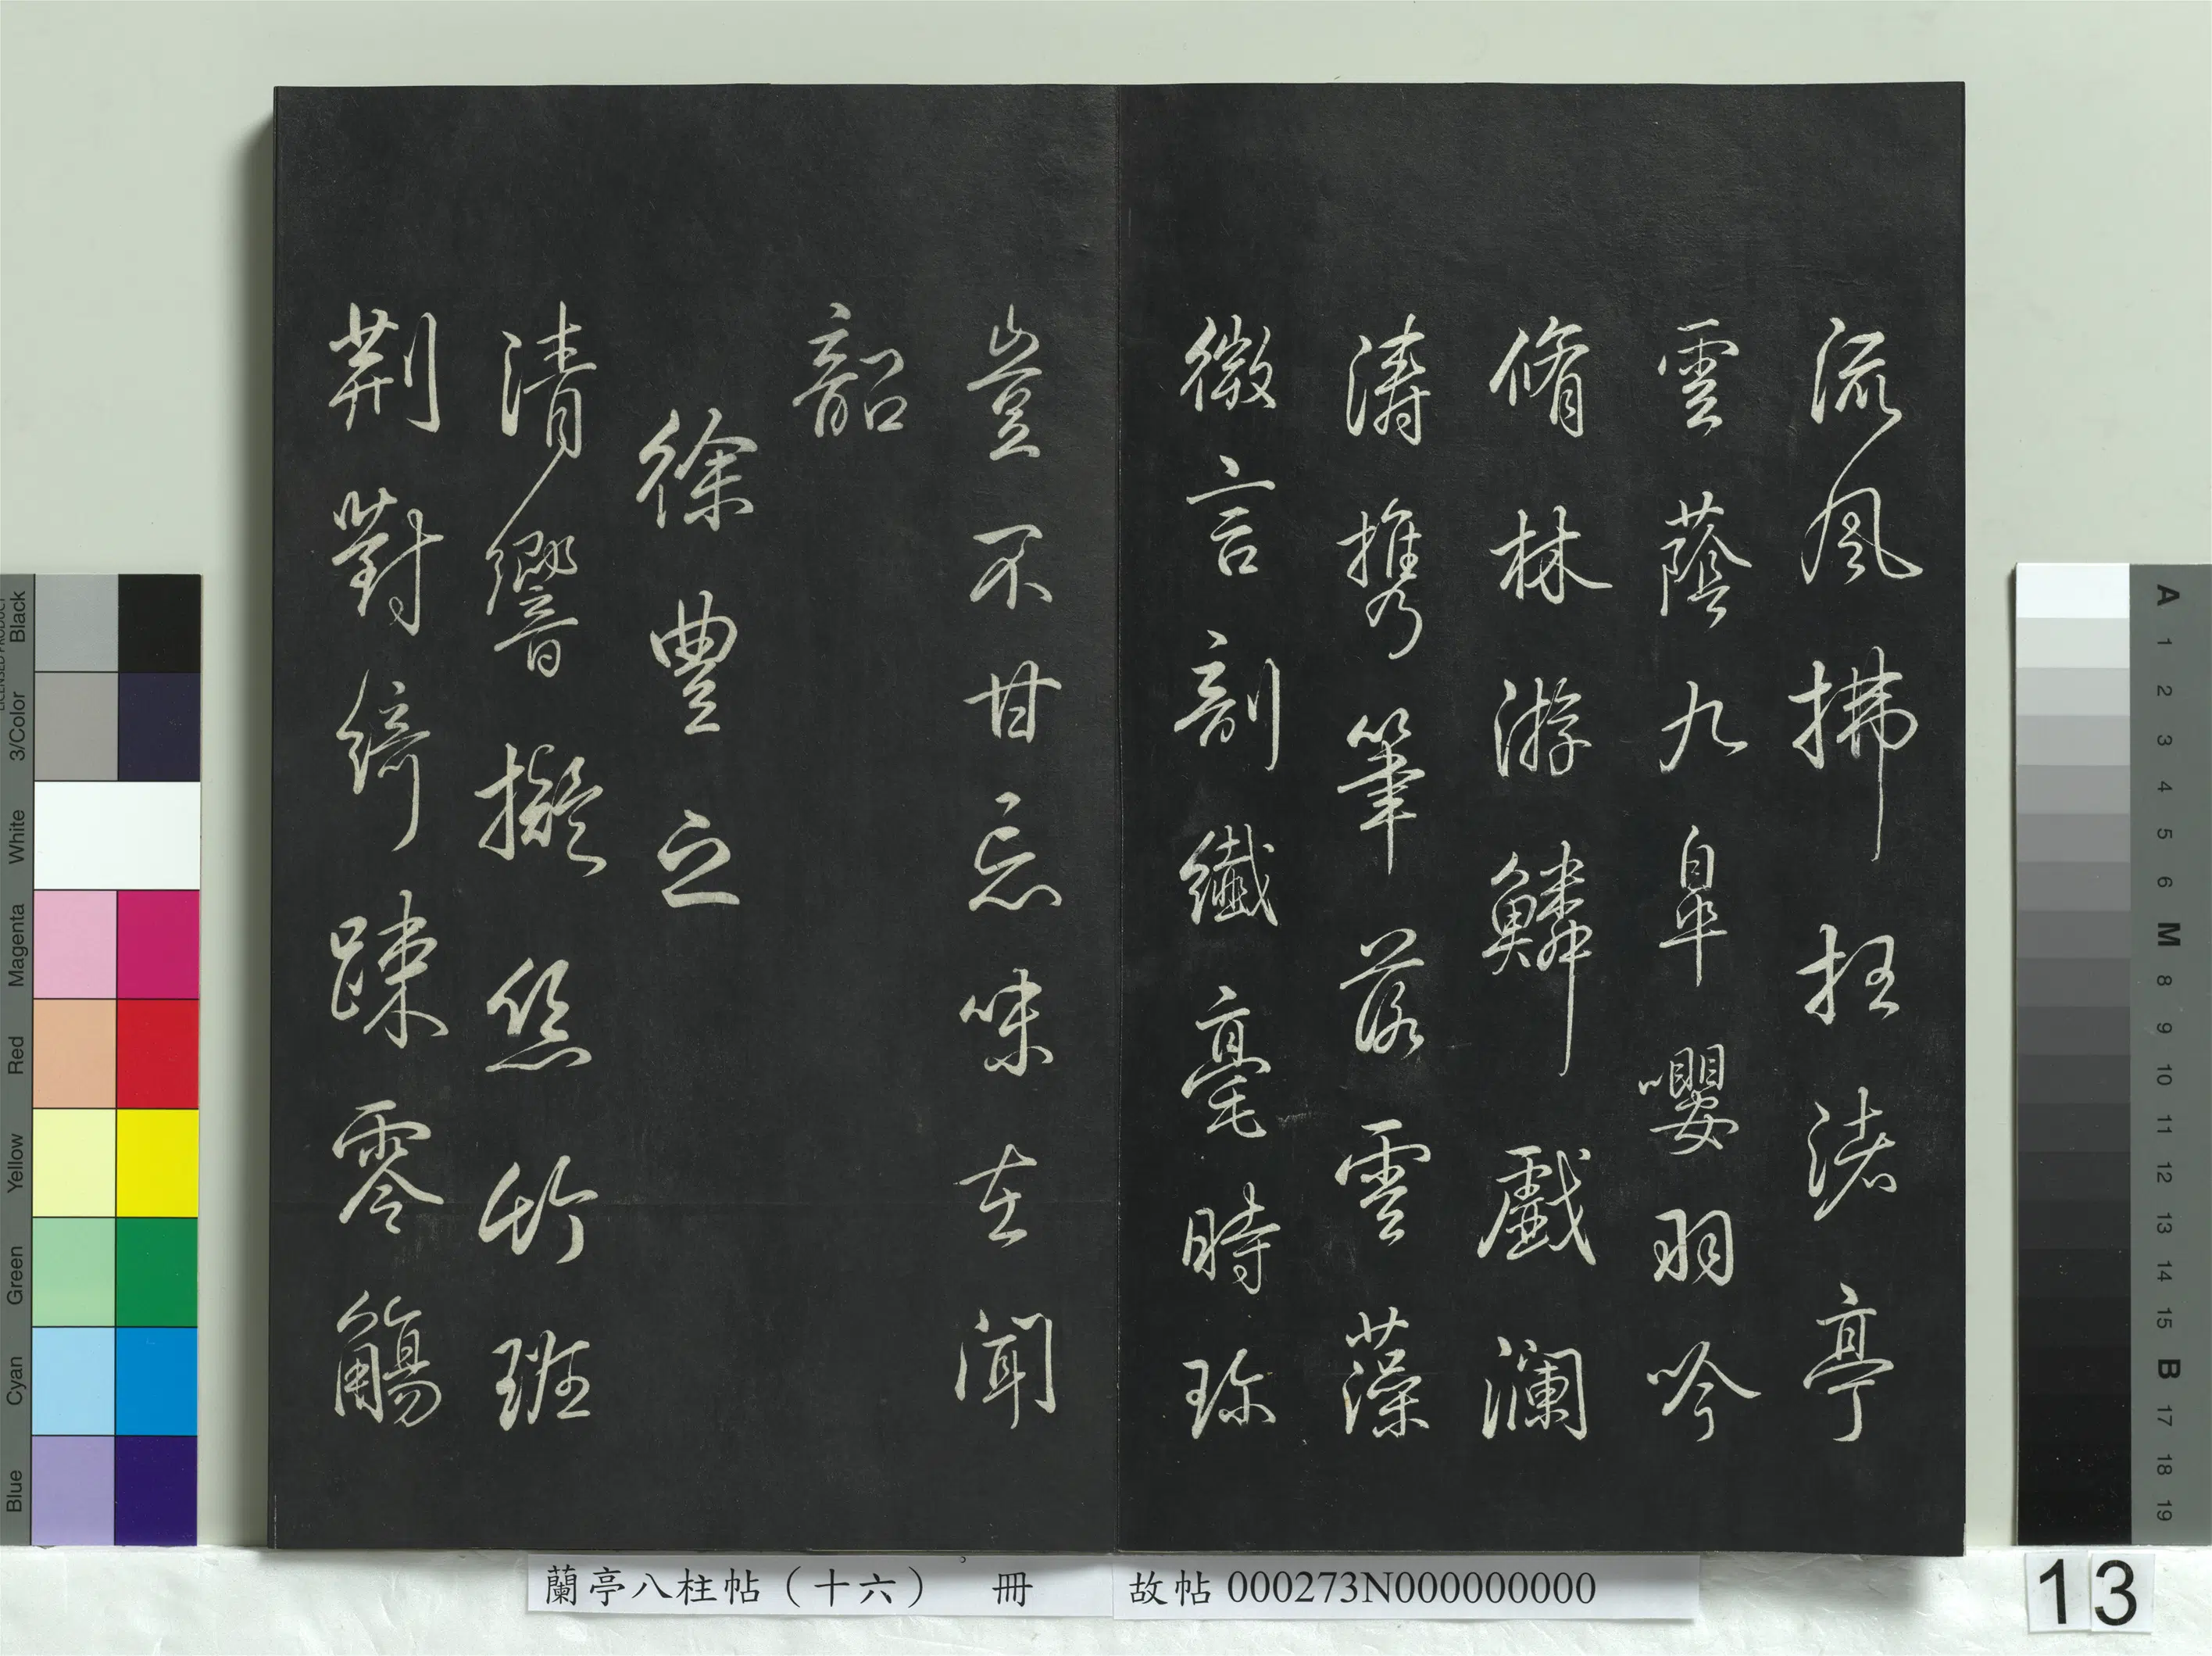 流風拂枉渚亭
雲蔭九皋嚶羽吟
脩林游鱗戲瀾
濤攜筆落雲藻
微言剖纖毫時珍
豈不甘忘味在聞
韶
徐豐之
清響擬絲竹班
荊對綺疎零觴
蘭亭八柱帖（十六） 冊
故帖 000273N000000000
13
Black
3/Color
White
Magenta
Red
Yellow
Green
Cyan
Blue
A
1
2
3
4
5
6
M
8
9
10
11
12
13
14
15
B
17
18
19